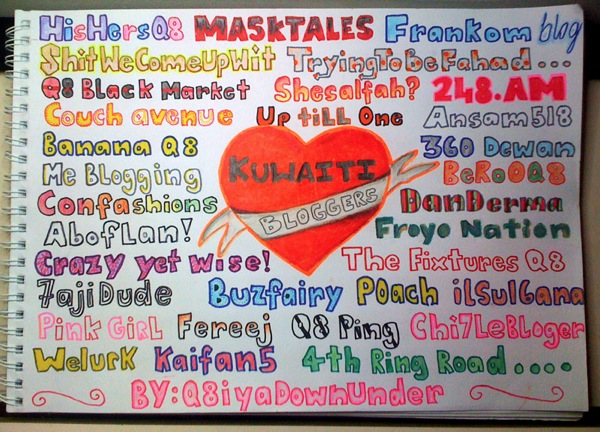 HisHersQ8 MASKTALES Frankom blog
ShitWeComeUpWit TryingToBeFahad...
Q8 Black Market Shesalfah? 248.AM
Couch avenue Up tiLL One Ansam518
Banana Q8 360 Dewan
Me Blogging BeRoOQ8
KUWAITI
Confashions DanDerma
BLoggERS
AbofLan! Froyo Nation
Crazy yet wise! The Fixtures Q8
7ajiDude Buzfairy POach ilSul6ana
Pink GirL Fereej Q8 Ping Chi7LeBloger
WeLurk Kaifan5 4th Ring Road....
BY:Q8iyaDownUnder